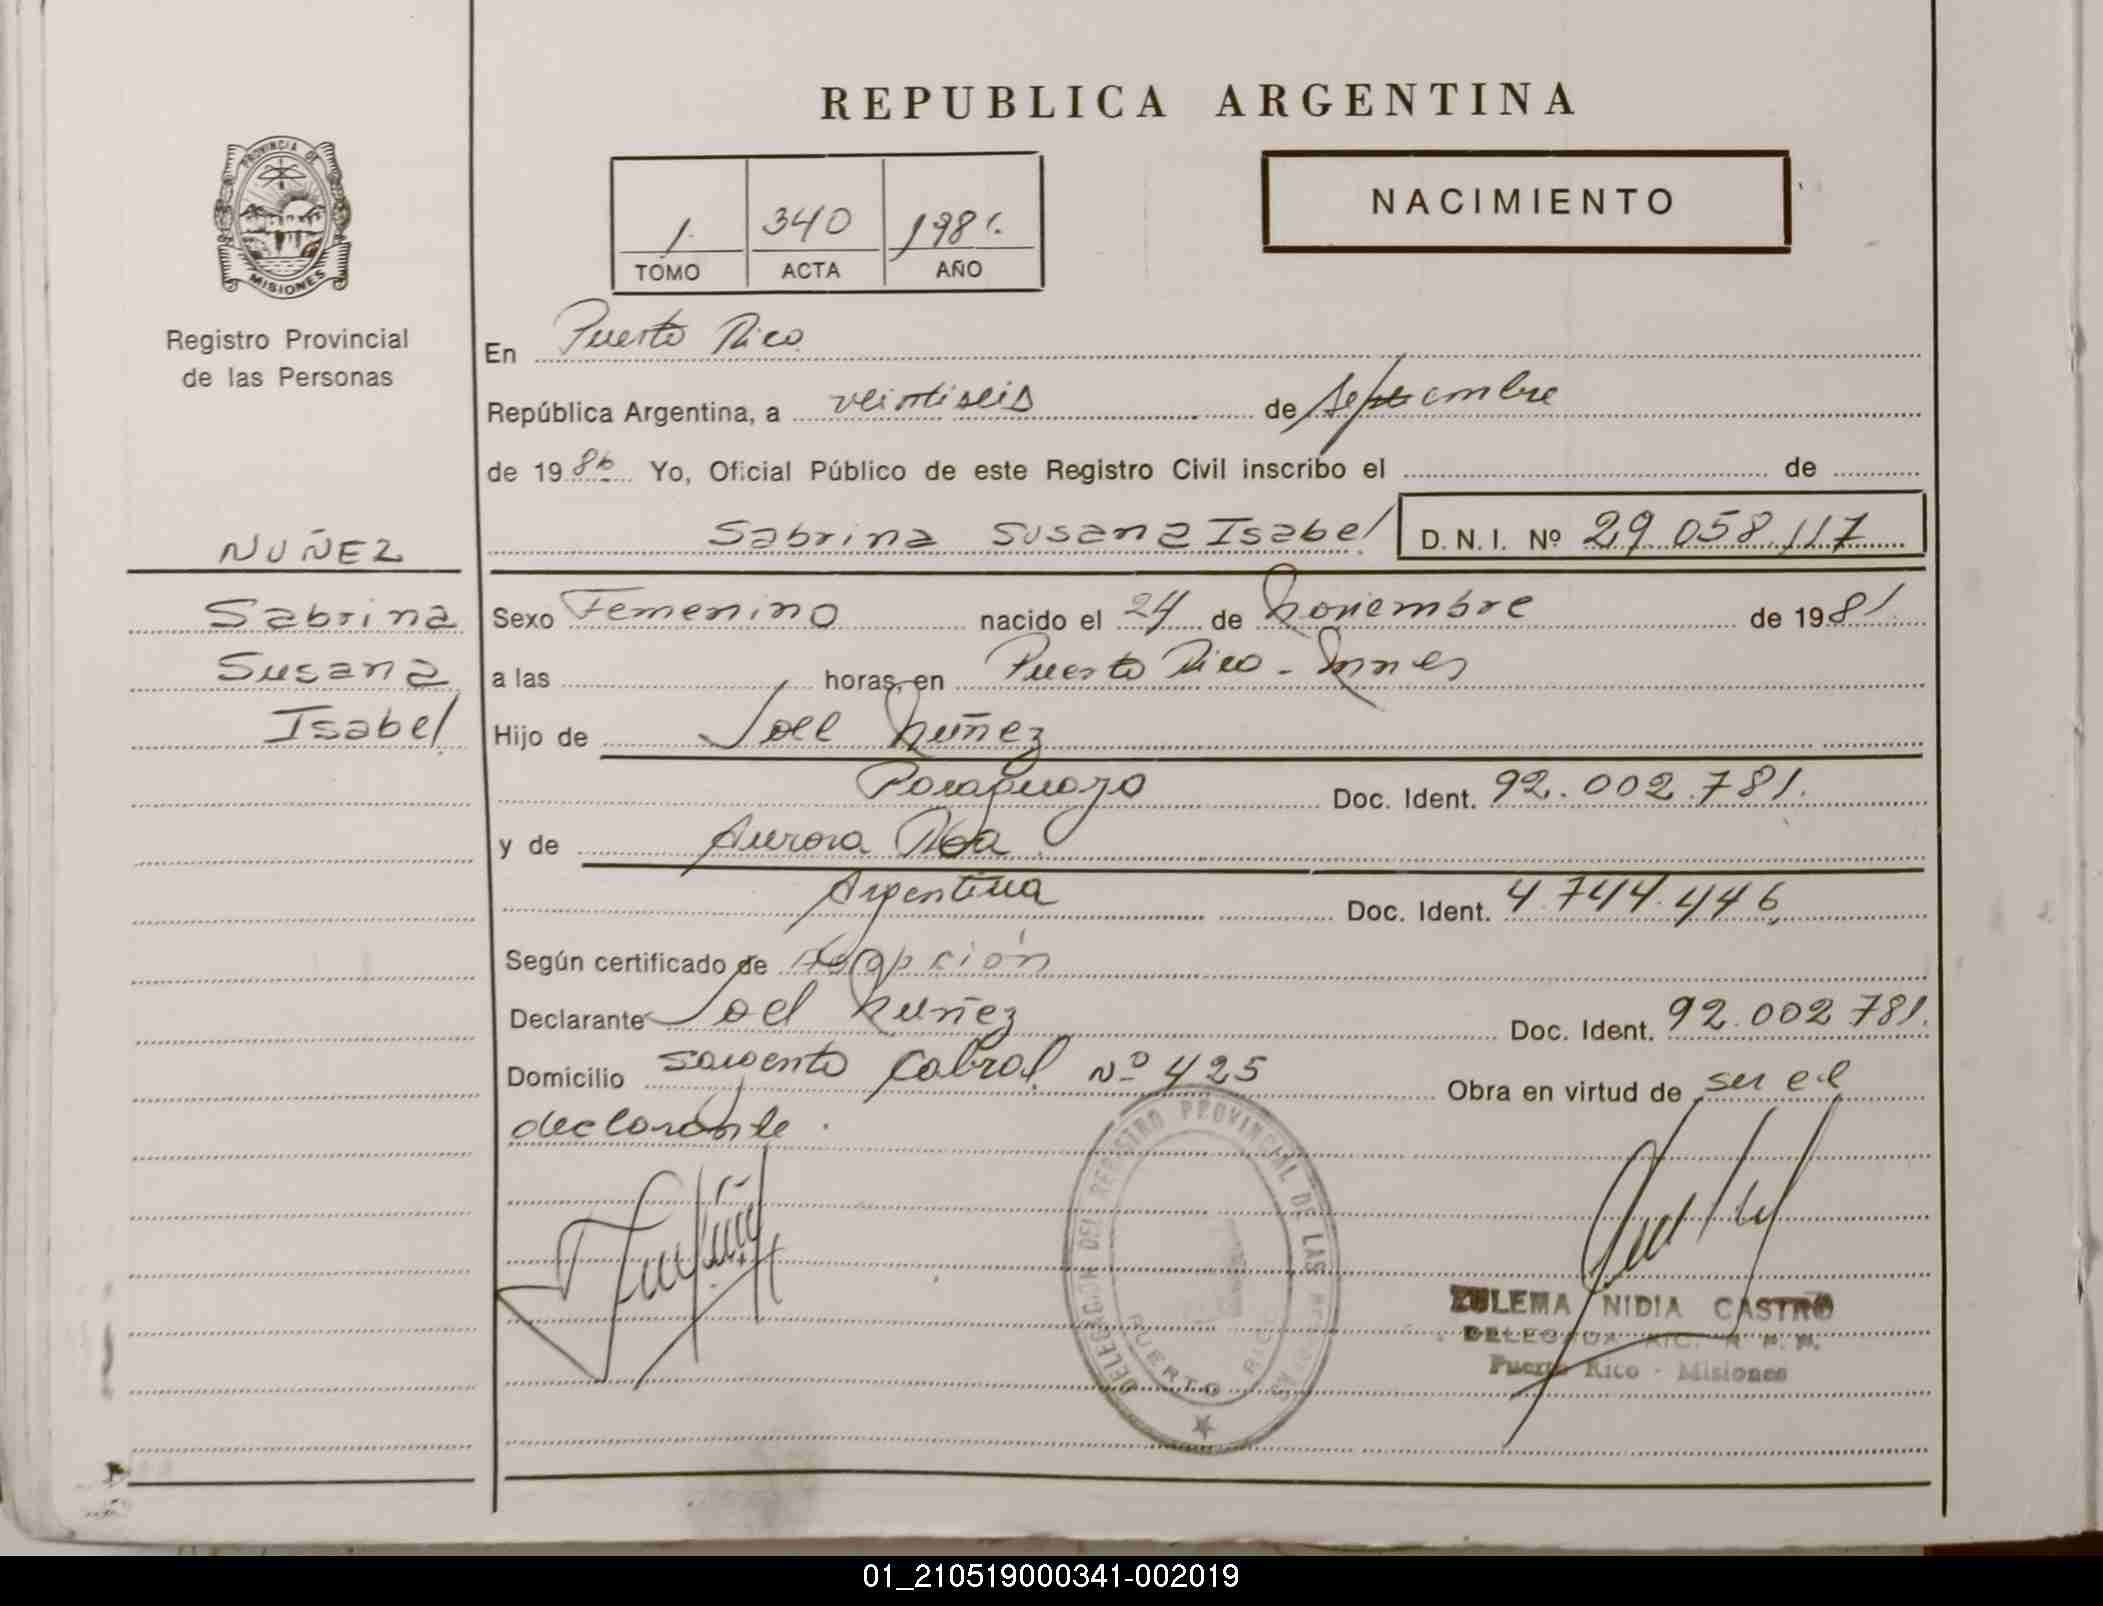 REPUBLICA ARGENTINA
PROVINCIA DE
MISIONES
Registro Provincial
de las Personas
1. 340 1981.
TOMO ACTA AÑO
NACIMIENTO
En Puerto Rico
República Argentina, a veintiseis de Septiembre
de 1986 Yo, Oficial Público de este Registro Civil inscribo el de
NUÑEZ
Sabrina Susana Isabel D.N.I. Nº 29.058.117
Sabrina
Susana
Isabel.
Sexo Femenino nacido el 24 de Noviembre de 1981
a las horas, en Puerto Rico - Mnes
Hijo de Joel Nuñez
Paraguayo Doc. Ident. 92.002.781.
y de Aurora
Argentina Doc. Ident. 4.744.446
Según certificado de Adopción
Declarante Joel Nuñez Doc. Ident. 92.002.781.
Domicilio Sargento Cabral Nº 425 Obra en virtud de ser el
declarante.
DELEGACION DEL REGISTRO PROVINCIAL DE LAS PERSONAS
PUERTO RICO
ZULEMA NIDIA CASTRO
DELEGADA R. P. P.
Puerto Rico - Misiones
01_210519000341-002019